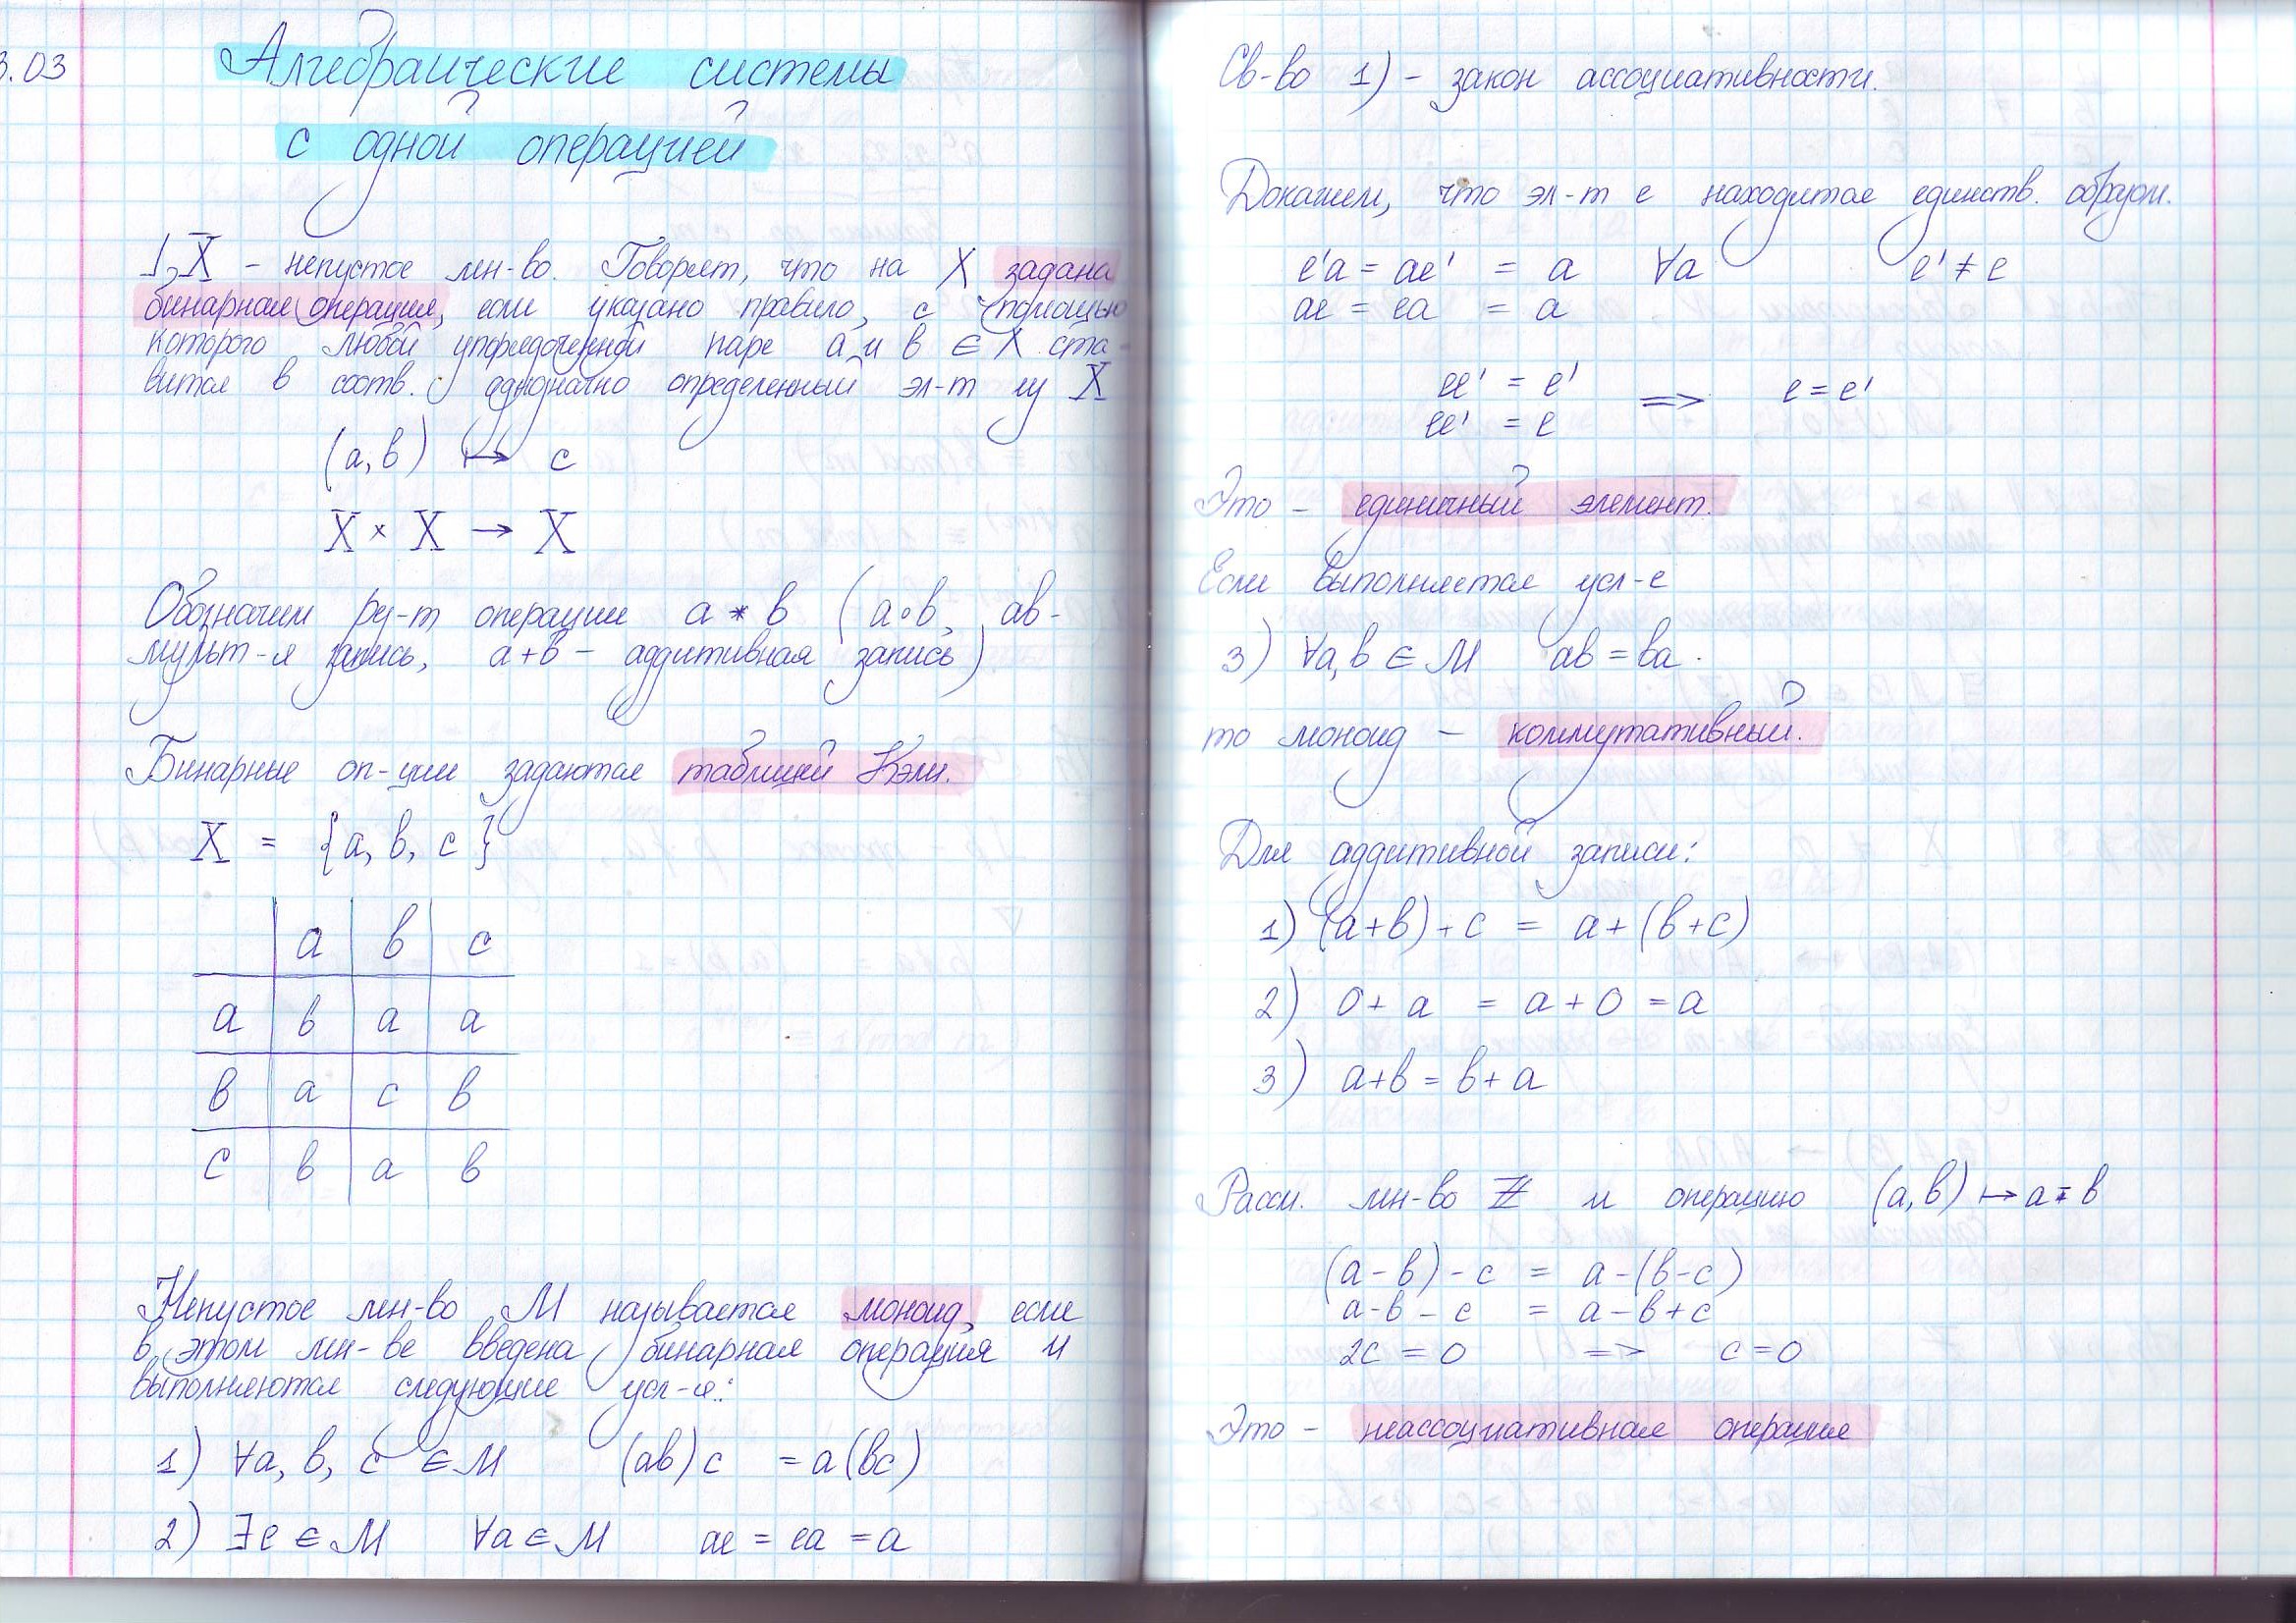 3.03
Алгебраические системы
с одной операцией
X – непустое мн-во. Говорят, что на X задана
бинарная операция, если указано правило, с помощью
которого любой упорядоченной паре a и b ∈ X ста-
вится в соотв. однозначно определенный эл-т из X
(a, b) ↦ c
X × X → X
Обозначим рез-т операции a * b (a∘b, ab -
мульт-я запись, a+b – аддитивная запись)
Бинарные оп-ции задаются таблицей Кэли.
X = {a, b, c}
a b c
a b a a
b a c b
c b a b
Непустое мн-во M называется моноид, если
в этом мн-ве введена бинарная операция и
выполняются следующие усл-я:
1) ∀a, b, c ∈ M (ab)c = a(bc)
2) ∃e ∈ M ∀a ∈ M ae = ea = a
Св-во 1) – закон ассоциативности.
Докажем, что эл-т e находится единств. образом.
e'a = ae' = a ∀a e' ≠ e
ae = ea = a
ee' = e'
ee' = e ⇒ e = e'
Это – единичный элемент.
Если выполняется усл-е
3) ∀a, b ∈ M ab = ba.
то моноид – коммутативный.
Для аддитивной записи:
1) (a+b)+c = a+(b+c)
2) 0+a = a+0 = a
3) a+b = b+a
Рассм. мн-во ℤ и операцию (a, b) ↦ a - b
(a-b)-c = a-(b-c)
a-b-c = a-b+c
2c = 0 => c=0
Это – неассоциативная операция